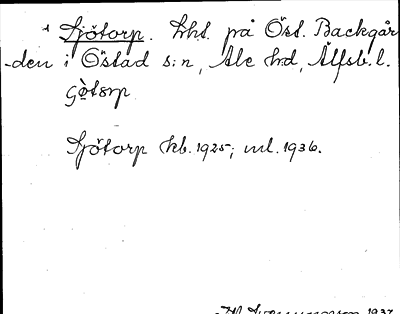 * Sjötorp. Lht. på Öst. Backgår
-den i Östad s:n, Ale hd, Älfsb. l.
Sjötorp kb. 1925; ml. 1936.
1937